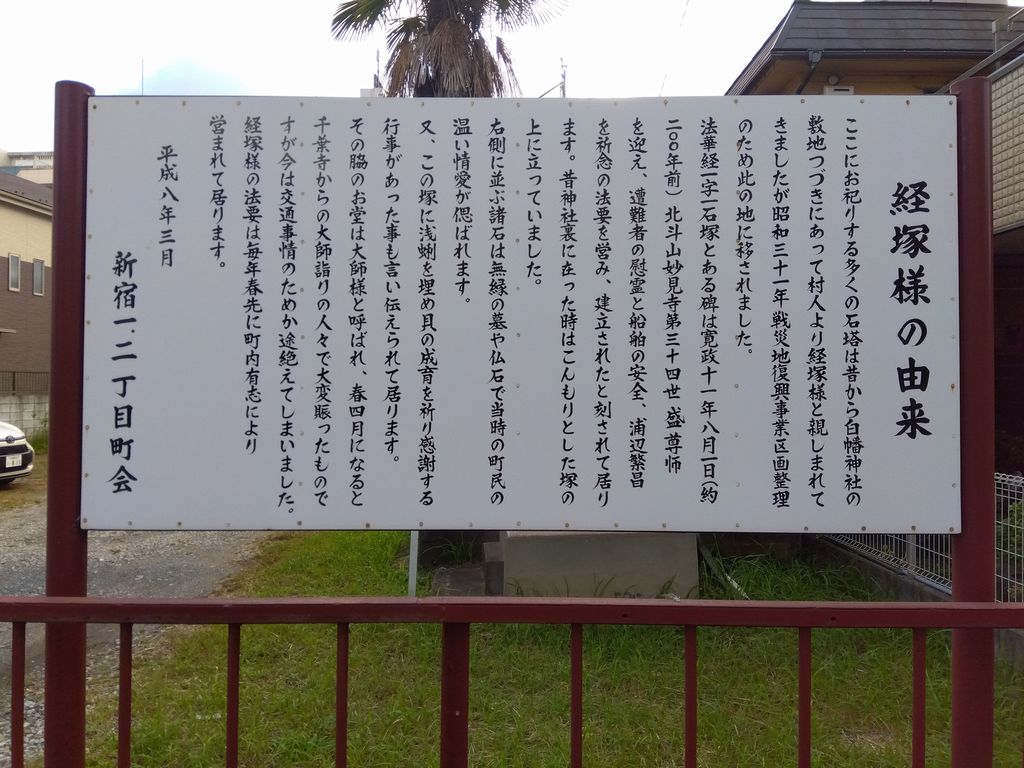 経塚様の由来
ここにお祀りする多くの石塔は昔から白幡神社の
敷地つづきにあって村人より経塚様と親しまれて
きましたが昭和三十一年戦災地復興事業区画整理
のため此の地に移されました。
法華経一字一石塚とある碑は寛政十一年八月一日(約
二〇〇年前)北斗山妙見寺第三十四世盛尊師
を迎え、遭難者の慰霊と船舶の安全、浦辺繁昌
を祈念の法要を営み、建立されたと刻されて居り
ます。昔神社裏に在った時はこんもりとした塚の
上に立っていました。
右側に並ぶ諸石は無縁の墓や仏石で当時の町民の
温い情愛が偲ばれます。
又、この塚に浅蜊を埋め貝の成育を祈り感謝する
行事があった事も言い伝えられて居ります。
その脇のお堂は大師様と呼ばれ、春四月になると
千葉寺からの大師詣りの人々で大変賑ったもので
すが今は交通事情のためか途絶えてしまいました。
経塚様の法要は毎年春先に町内有志により
営まれて居ります。
平成八年三月
新宿一、二丁目町会